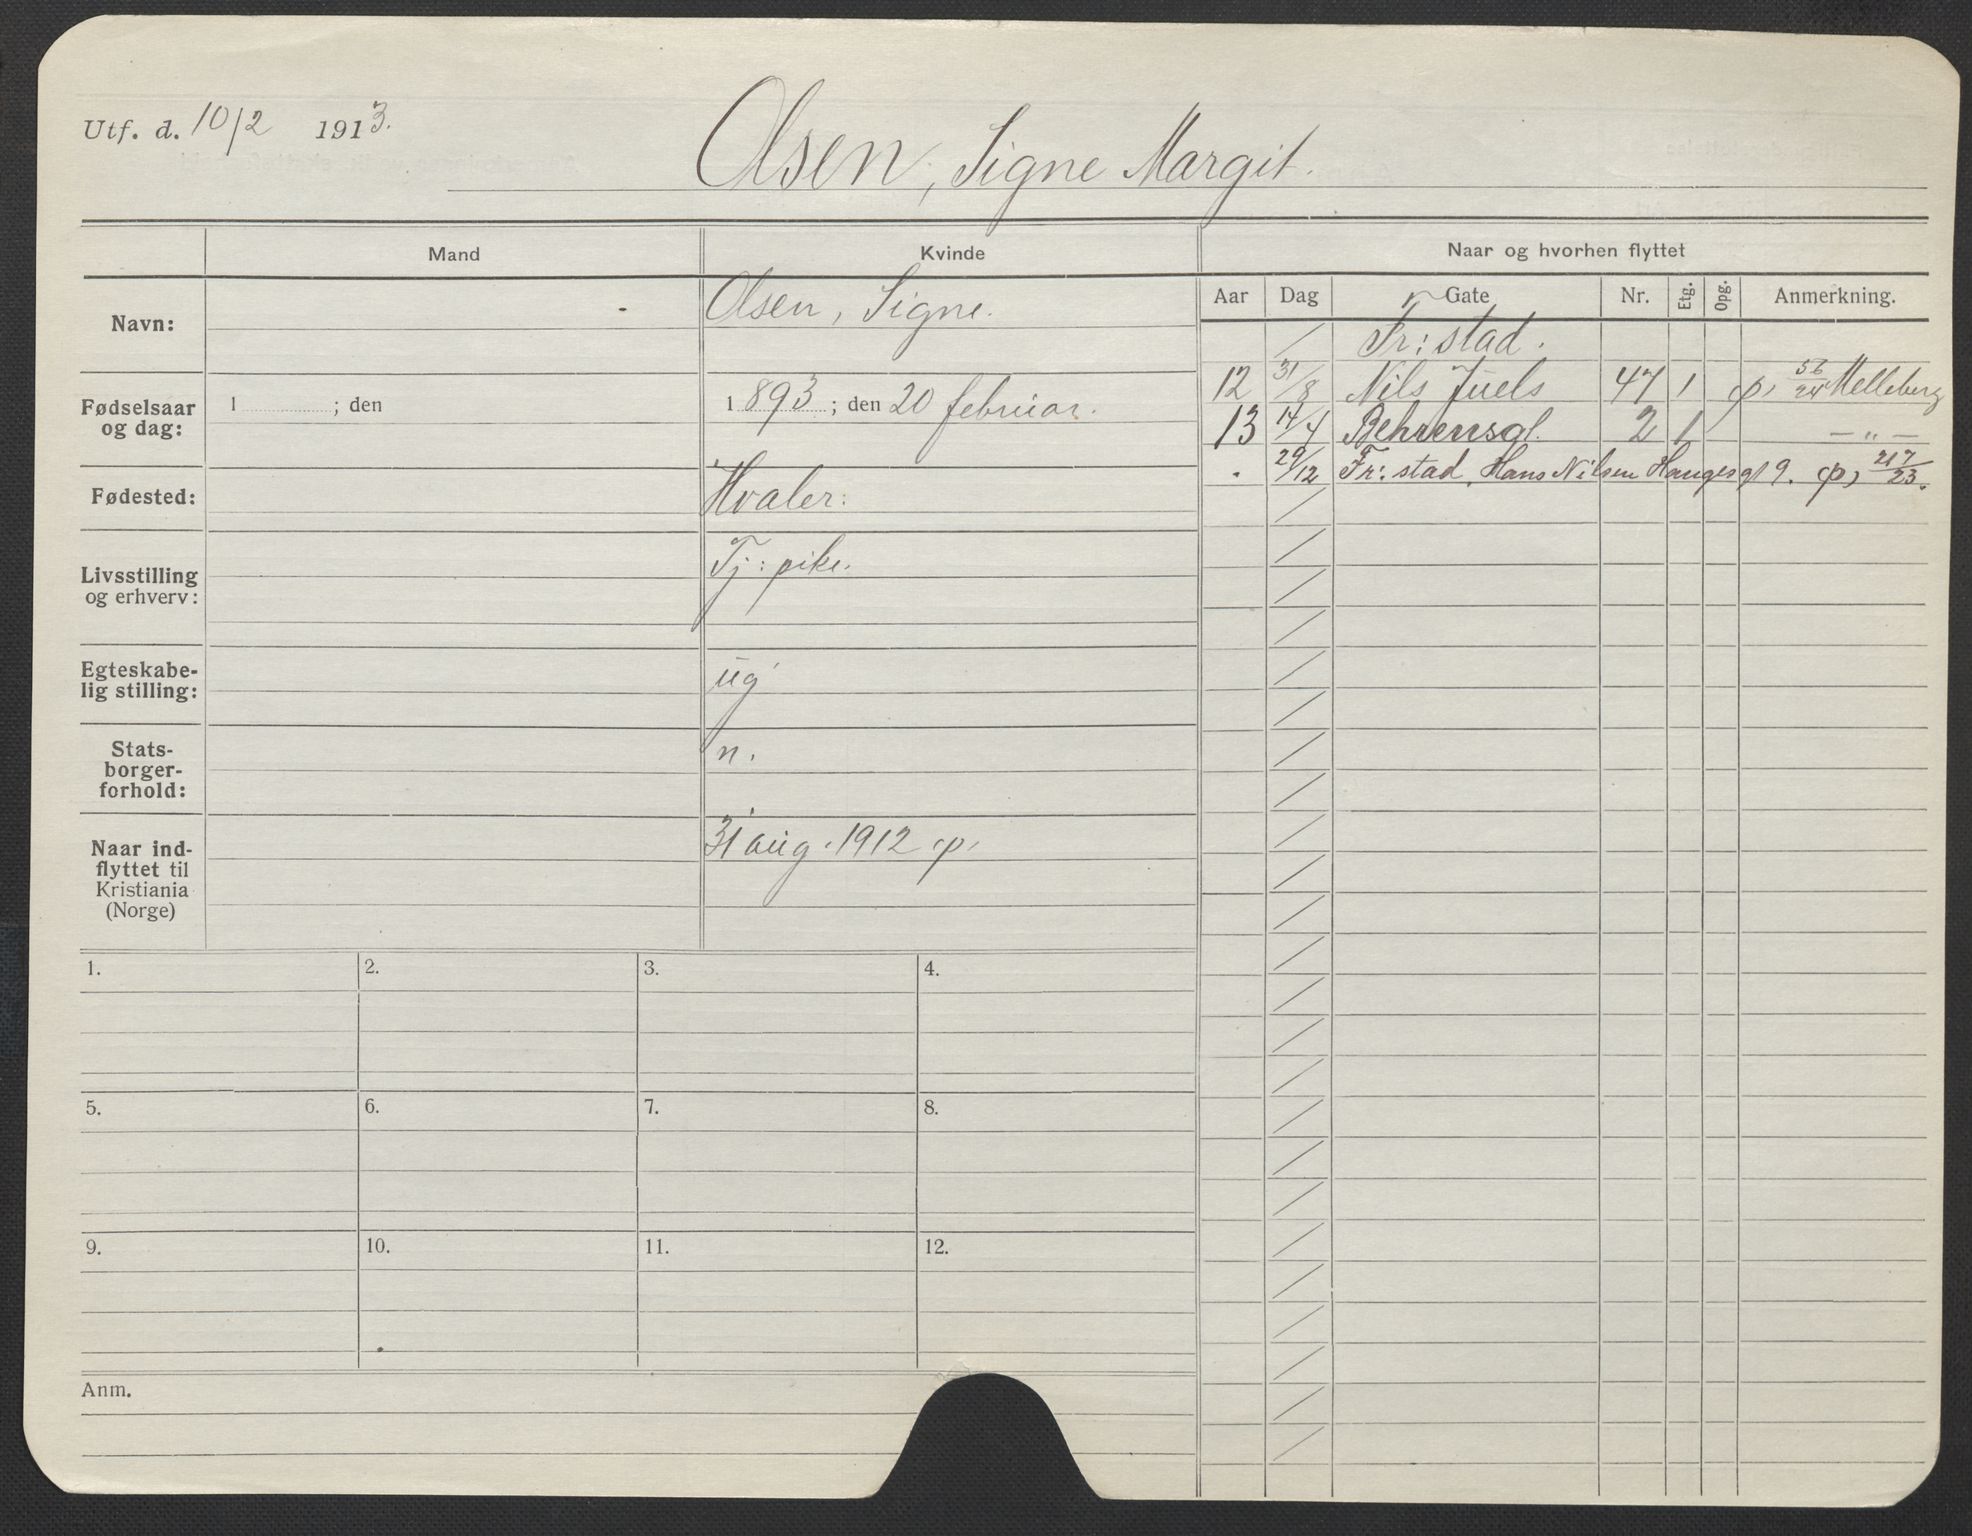 Utf. d. 10/2 1913.
Olsen, Signe Margit.
Mand
Kvinde
Navn:
Olsen, Signe.
Fødselsaar og dag:
1 ; den
1893; den 20 februar.
Fødested:
Hvaler.
Livsstilling og erhverv:
Tj: pike.
Egteskabe-
lig stilling:
ug
Stats-
borger-
forhold:
n.
Naar ind-
flyttet til
Kristiania
(Norge)
31 aug. 1912 p.
Naar og hvorhen flyttet
Aar Dag Gate Nr. Etg. Opg. Anmerkning.
/ Fr: stad.
12 31/8 Nils Juels 47 1 p, 56/24 Melleberg
13 14/4 Behrensgt. 2 1 — „ —
. 29/12 Fr: stad, Hans Nilsen Haugesgt 9. p, 217/23.
1. 2. 3. 4.
5. 6. 7. 8.
9. 10. 11. 12.
Anm.